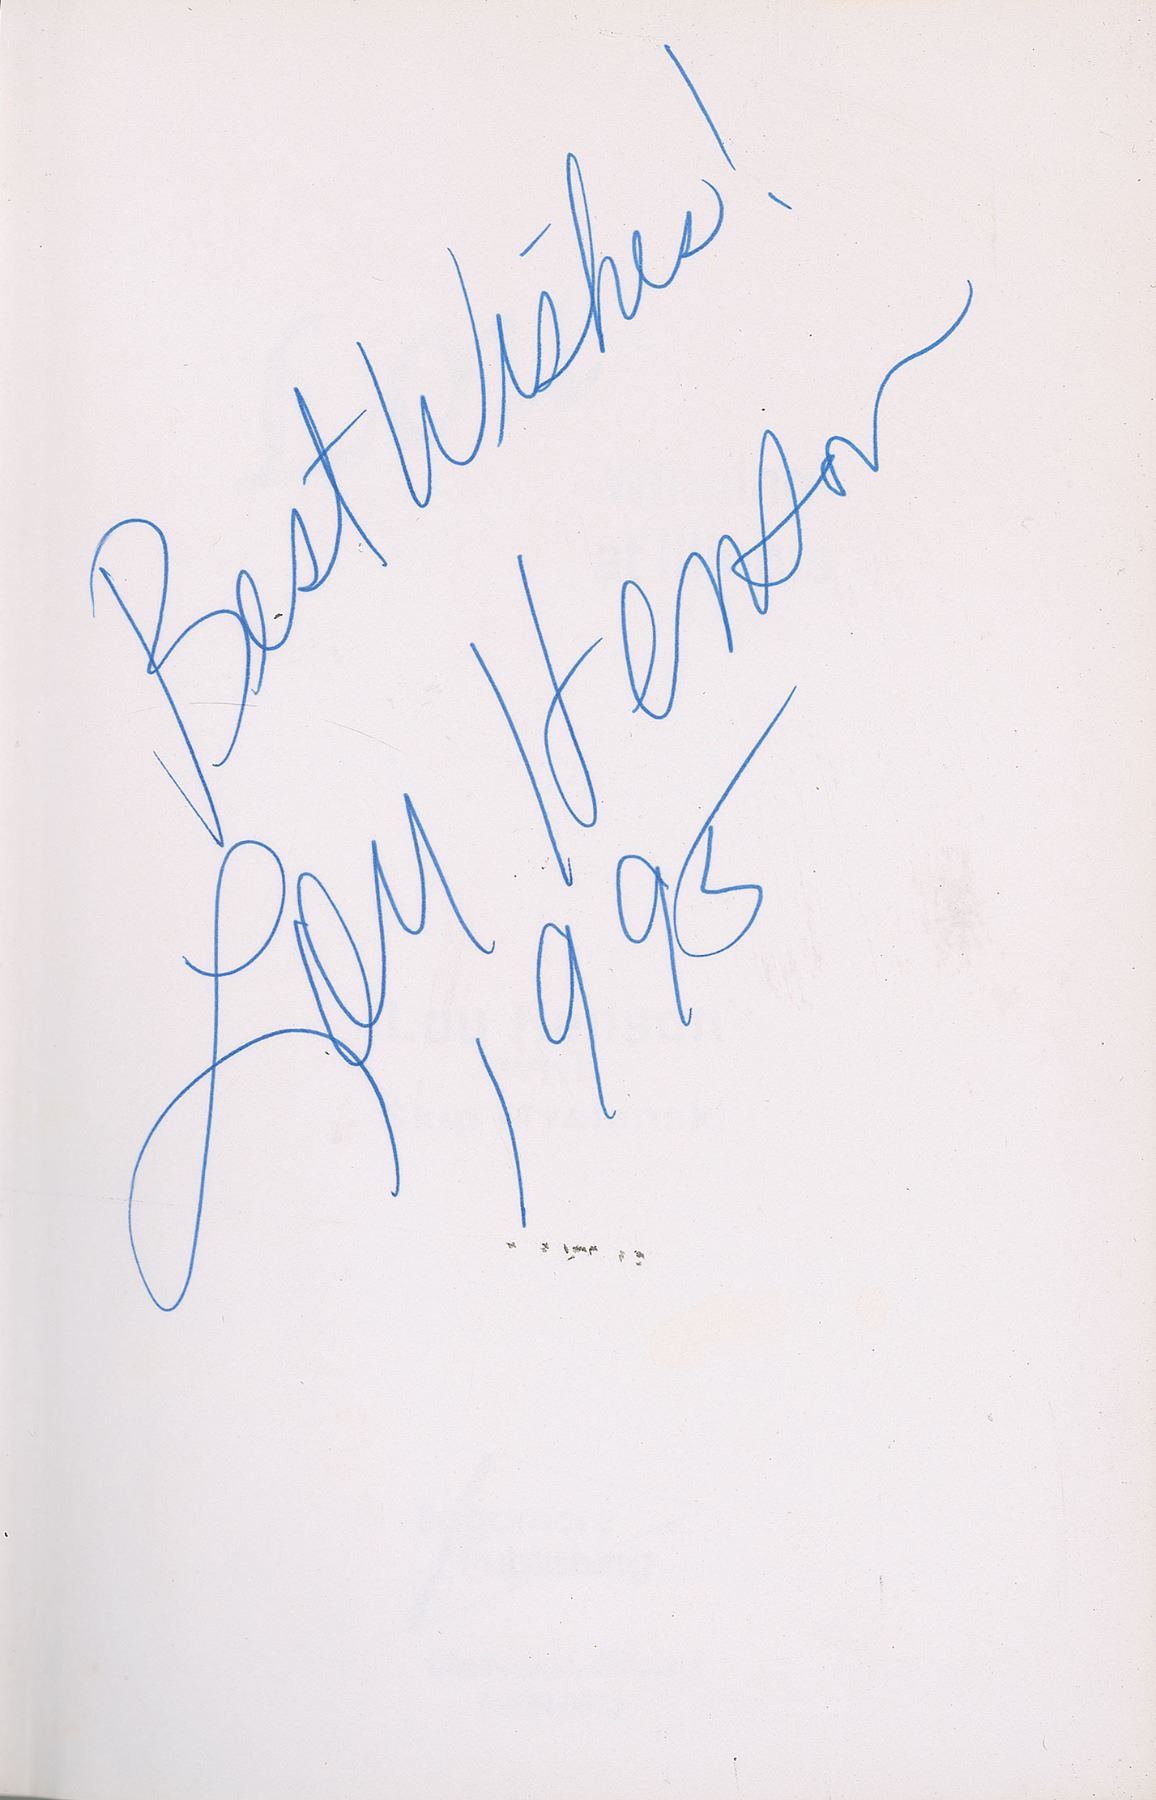 Best Wishes!
Henson
1995